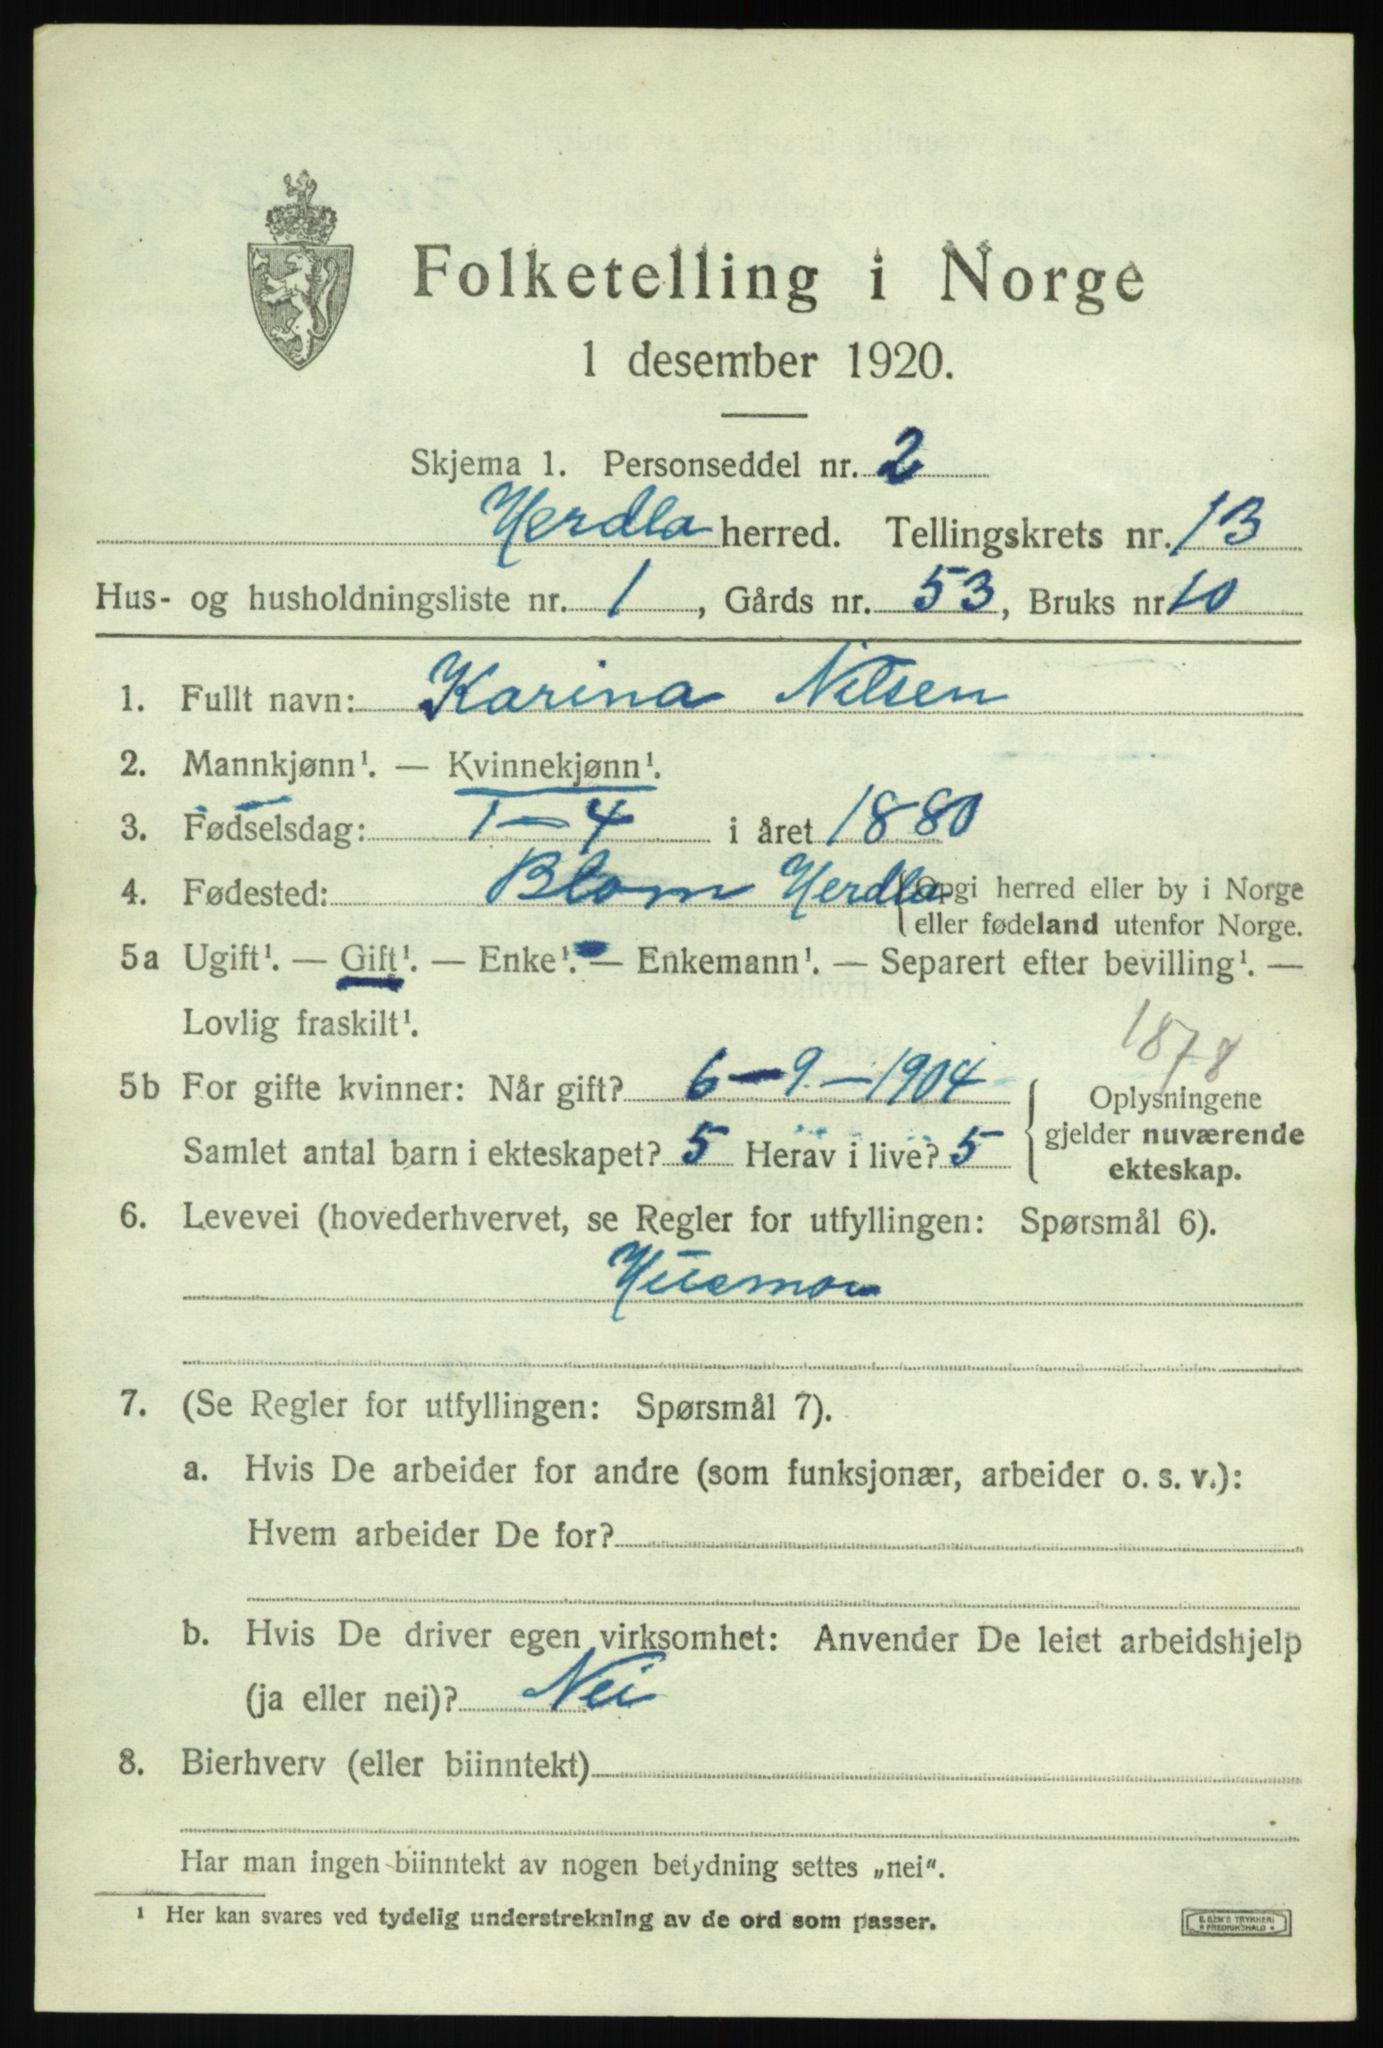 Folketelling i Norge
1 desember 1920.
Skjema 1. Personseddel nr. 2
Herdla herred. Tellingskrets nr. 13
Hus- og husholdningsliste nr. 1, Gårds nr. 53, Bruks nr 10
1. Fullt navn: Karina Nilsen
2. Mannkjønn¹. — Kvinnekjønn¹.
3. Fødselsdag: 1 — 4 i året 1880
4. Fødested: Blom Herdla {Opgi herred eller by i Norge
eller fødeland utenfor Norge.
5a Ugift¹. — Gift¹. — Enke¹. — Enkemann¹. — Separert efter bevilling¹. —
Lovlig fraskilt¹.
1878
5b For gifte kvinner: Når gift? 6 — 9 — 1904 { Oplysningene
gjelder nuværende
Samlet antal barn i ekteskapet? 5 Herav i live? 5
ekteskap.
6. Levevei (hovederhvervet, se Regler for utfyllingen: Spørsmål 6).
Husmor
7. (Se Regler for utfyllingen: Spørsmål 7).
a. Hvis De arbeider for andre (som funksjonær, arbeider o. s. v.):
Hvem arbeider De for?
b. Hvis De driver egen virksomhet: Anvender De leiet arbeidshjelp
(ja eller nei)? Nei
8. Bierhverv (eller biinntekt)
Har man ingen biinntekt av nogen betydning settes „nei“.
¹ Her kan svares ved tydelig understrekning av de ord som passer.
TRYKKERI
FREDRIKSHALD